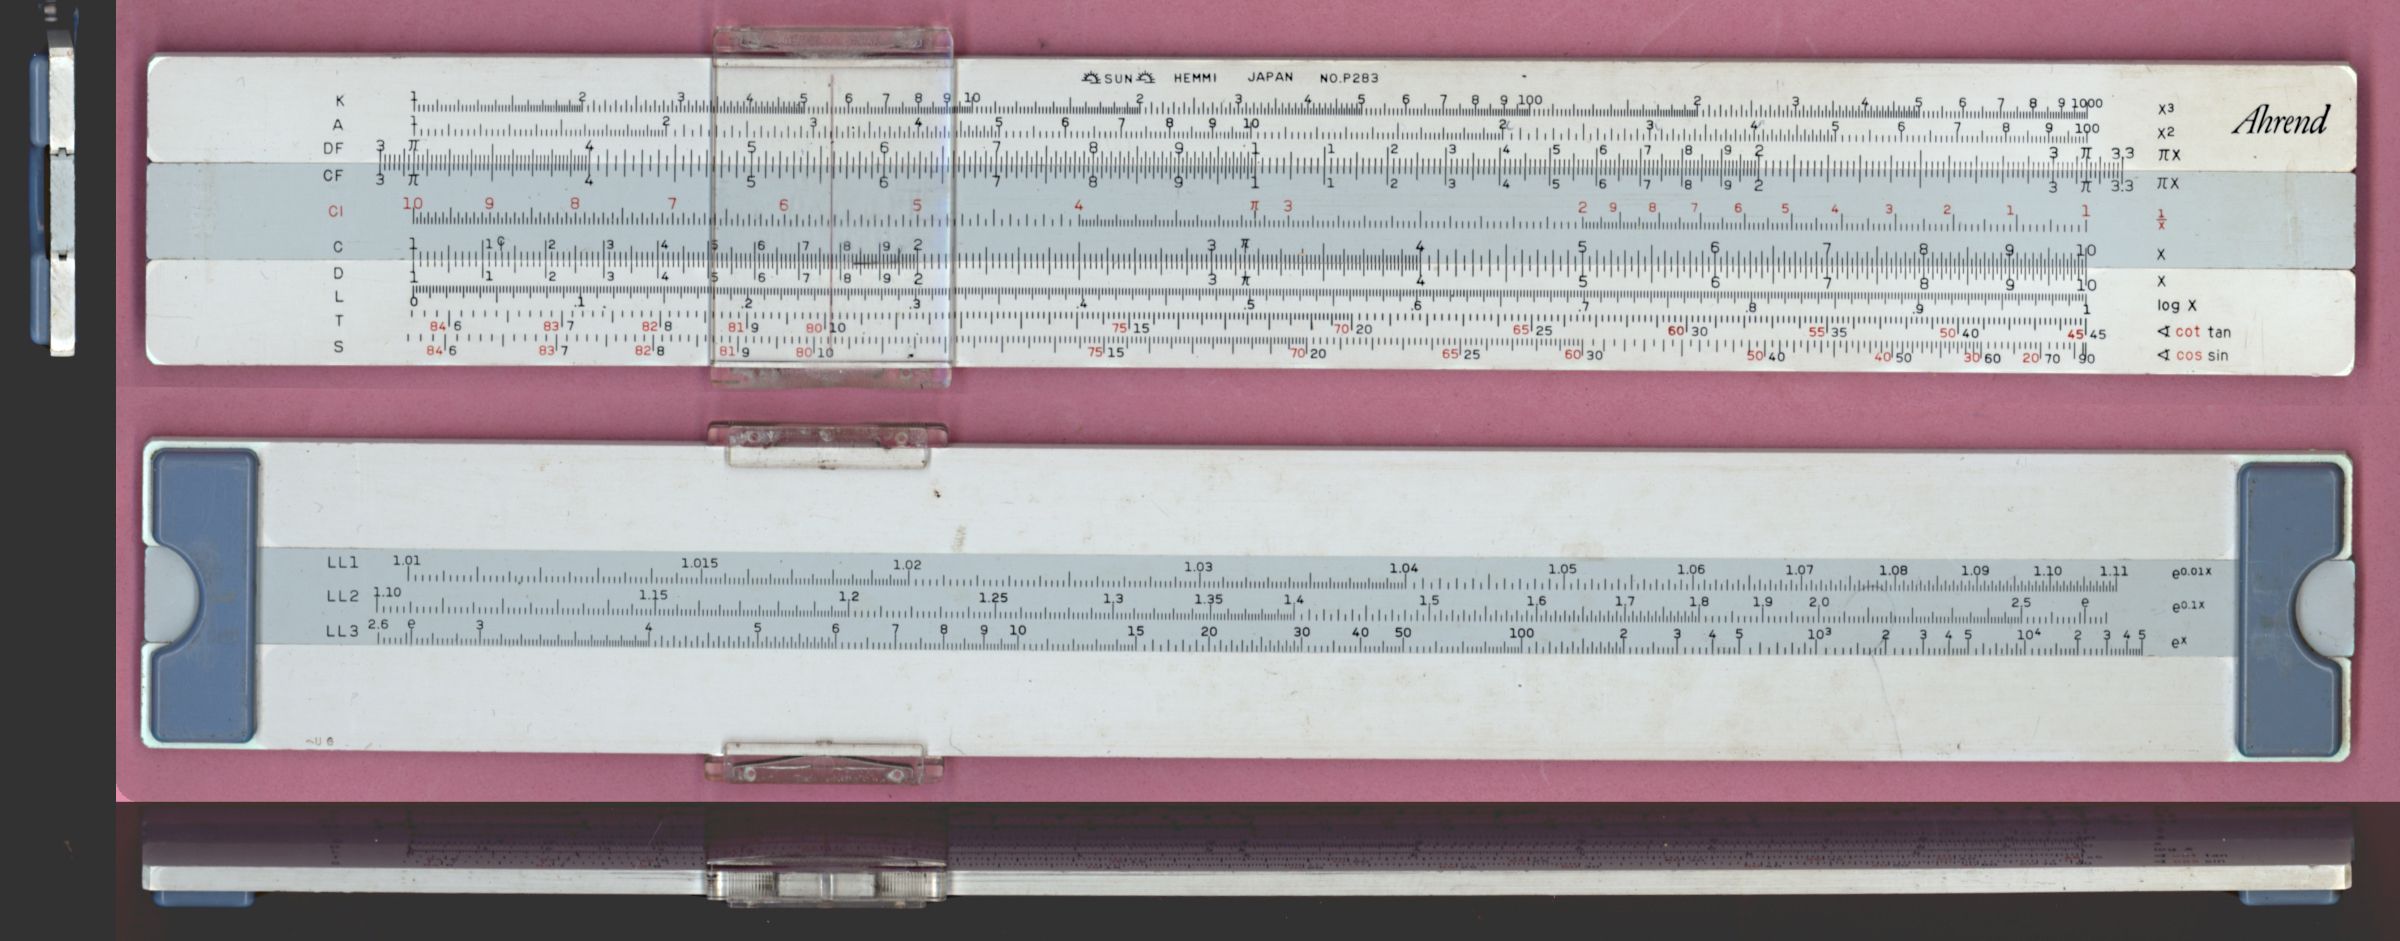 SUN HEMMI JAPAN NO.P283
K 1 2 3 4 5 6 7 8 9 10 2 3 4 5 6 7 8 9 100 2 3 4 5 6 7 8 9 1000 X3
Ahrend
A 1 2 3 4 5 6 7 8 9 10 2 3 4 5 6 7 8 9 100 X2
DF 3 π 4 5 6 7 8 9 1 1 2 3 4 5 6 7 8 9 2 3 π 3.3 πX
CF 3 π 4 5 6 7 8 9 1 1 2 3 4 5 6 7 8 9 2 3 π 3.3 πX
CI 10 9 8 7 6 5 4 π 3 2 9 8 7 6 5 4 3 2 1 1 1/x
C 1 1 C 2 3 4 5 6 7 8 9 2 3 π 4 5 6 7 8 9 10 X
D 1 1 2 3 4 5 6 7 8 9 2 3 π 4 5 6 7 8 9 10 X
L 0 .1 .2 .3 .4 .5 .6 .7 .8 .9 1 log X
T 84 6 83 7 82 8 81 9 80 10 75 15 70 20 65 25 60 30 55 35 50 40 45 45 ∢ cot tan
S 84 6 83 7 82 8 81 9 80 10 75 15 70 20 65 25 60 30 50 40 40 50 30 60 20 70 90 ∢ cos sin
LL1 1.01 1.015 1.02 1.03 1.04 1.05 1.06 1.07 1.08 1.09 1.10 1.11 e0.01x
LL2 1.10 1.15 1.2 1.25 1.3 1.35 1.4 1.5 1.6 1.7 1.8 1.9 2.0 2.5 e e0.1x
LL3 2.6 e 3 4 5 6 7 8 9 10 15 20 30 40 50 100 2 3 4 5 10³ 2 3 4 5 10⁴ 2 3 4 5 eˣ